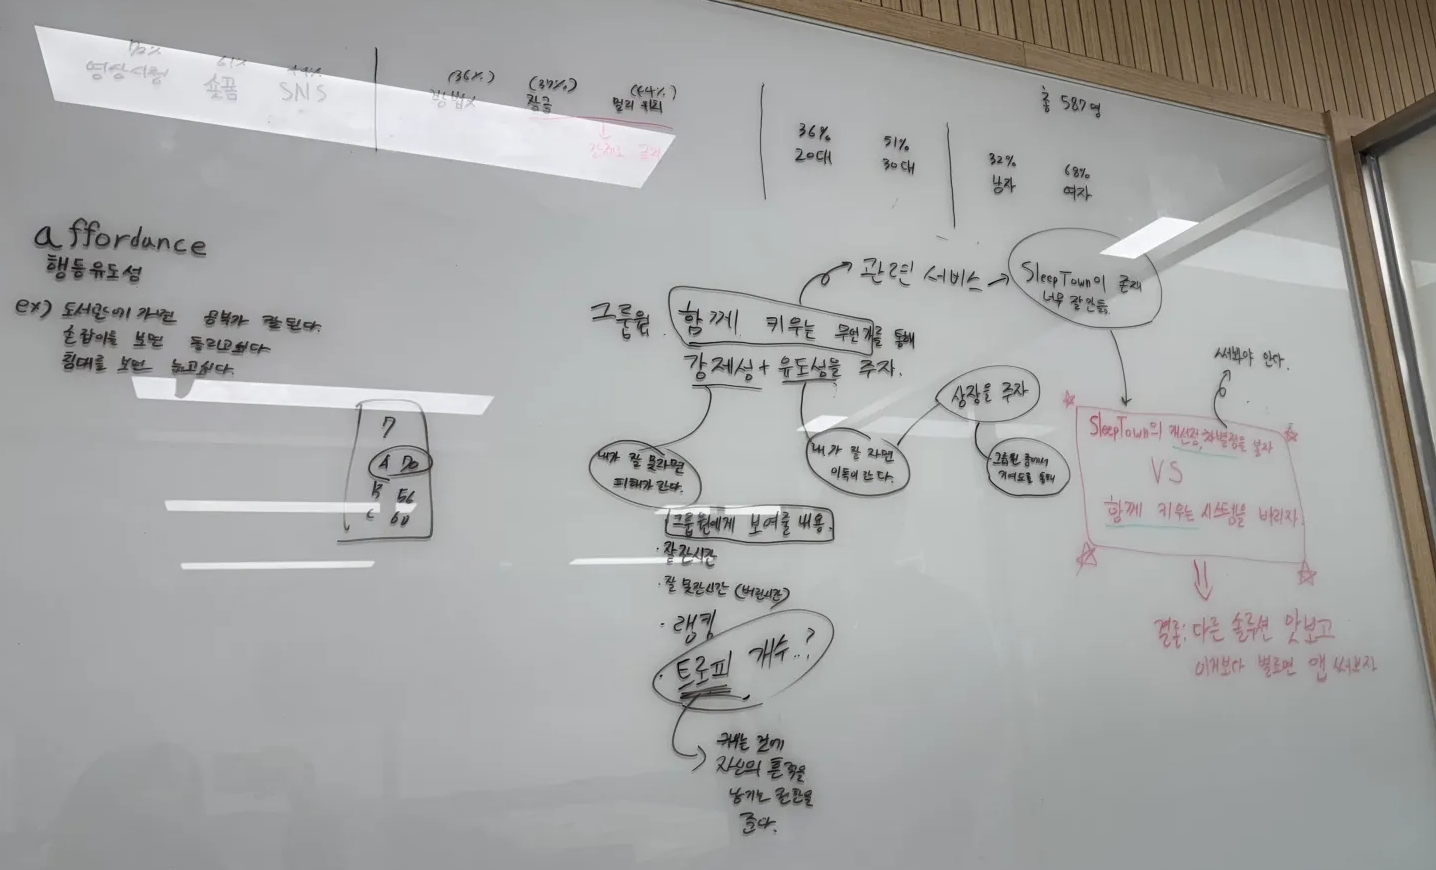 영상시청 숏폼 SNS
(36%) (37%) (44%)
잠금 멀리 위치
총 587명
36% 51%
20대 30대
32% 68%
남자 여자
affordance
행동유도성
ex) 도서관에 가면 공부가 잘 된다.
손잡이를 보면 돌리고싶다
침대를 보면 눕고싶다.
7
A 70
B 56
C 60
그룹원 함께 키우는 무언가를 통해
강제성 + 유도성을 주자.
관련 서비스
SleepTown이 존재
너무 잘 만듦.
내가 잘 못자면
피해가 간다.
내가 잘 자면
이득이 간다.
상장을 주자
그룹원 중에서
기여도를 통해
그룹원에게 보여줄 내용.
· 잘 잔시간
· 잘 못잔시간 (버린시간)
· 랭킹
· 트로피 개수..?
키우는 것에
자신의 흔적을
남기는 권한을
준다.
써봐야 안다.
SleepTown의 개선점, 차별점을 찾자
VS
함께 키우는 시스템을 버리자.
결론: 다른 솔루션 맛보고
이게보다 별로면 앱 써보자